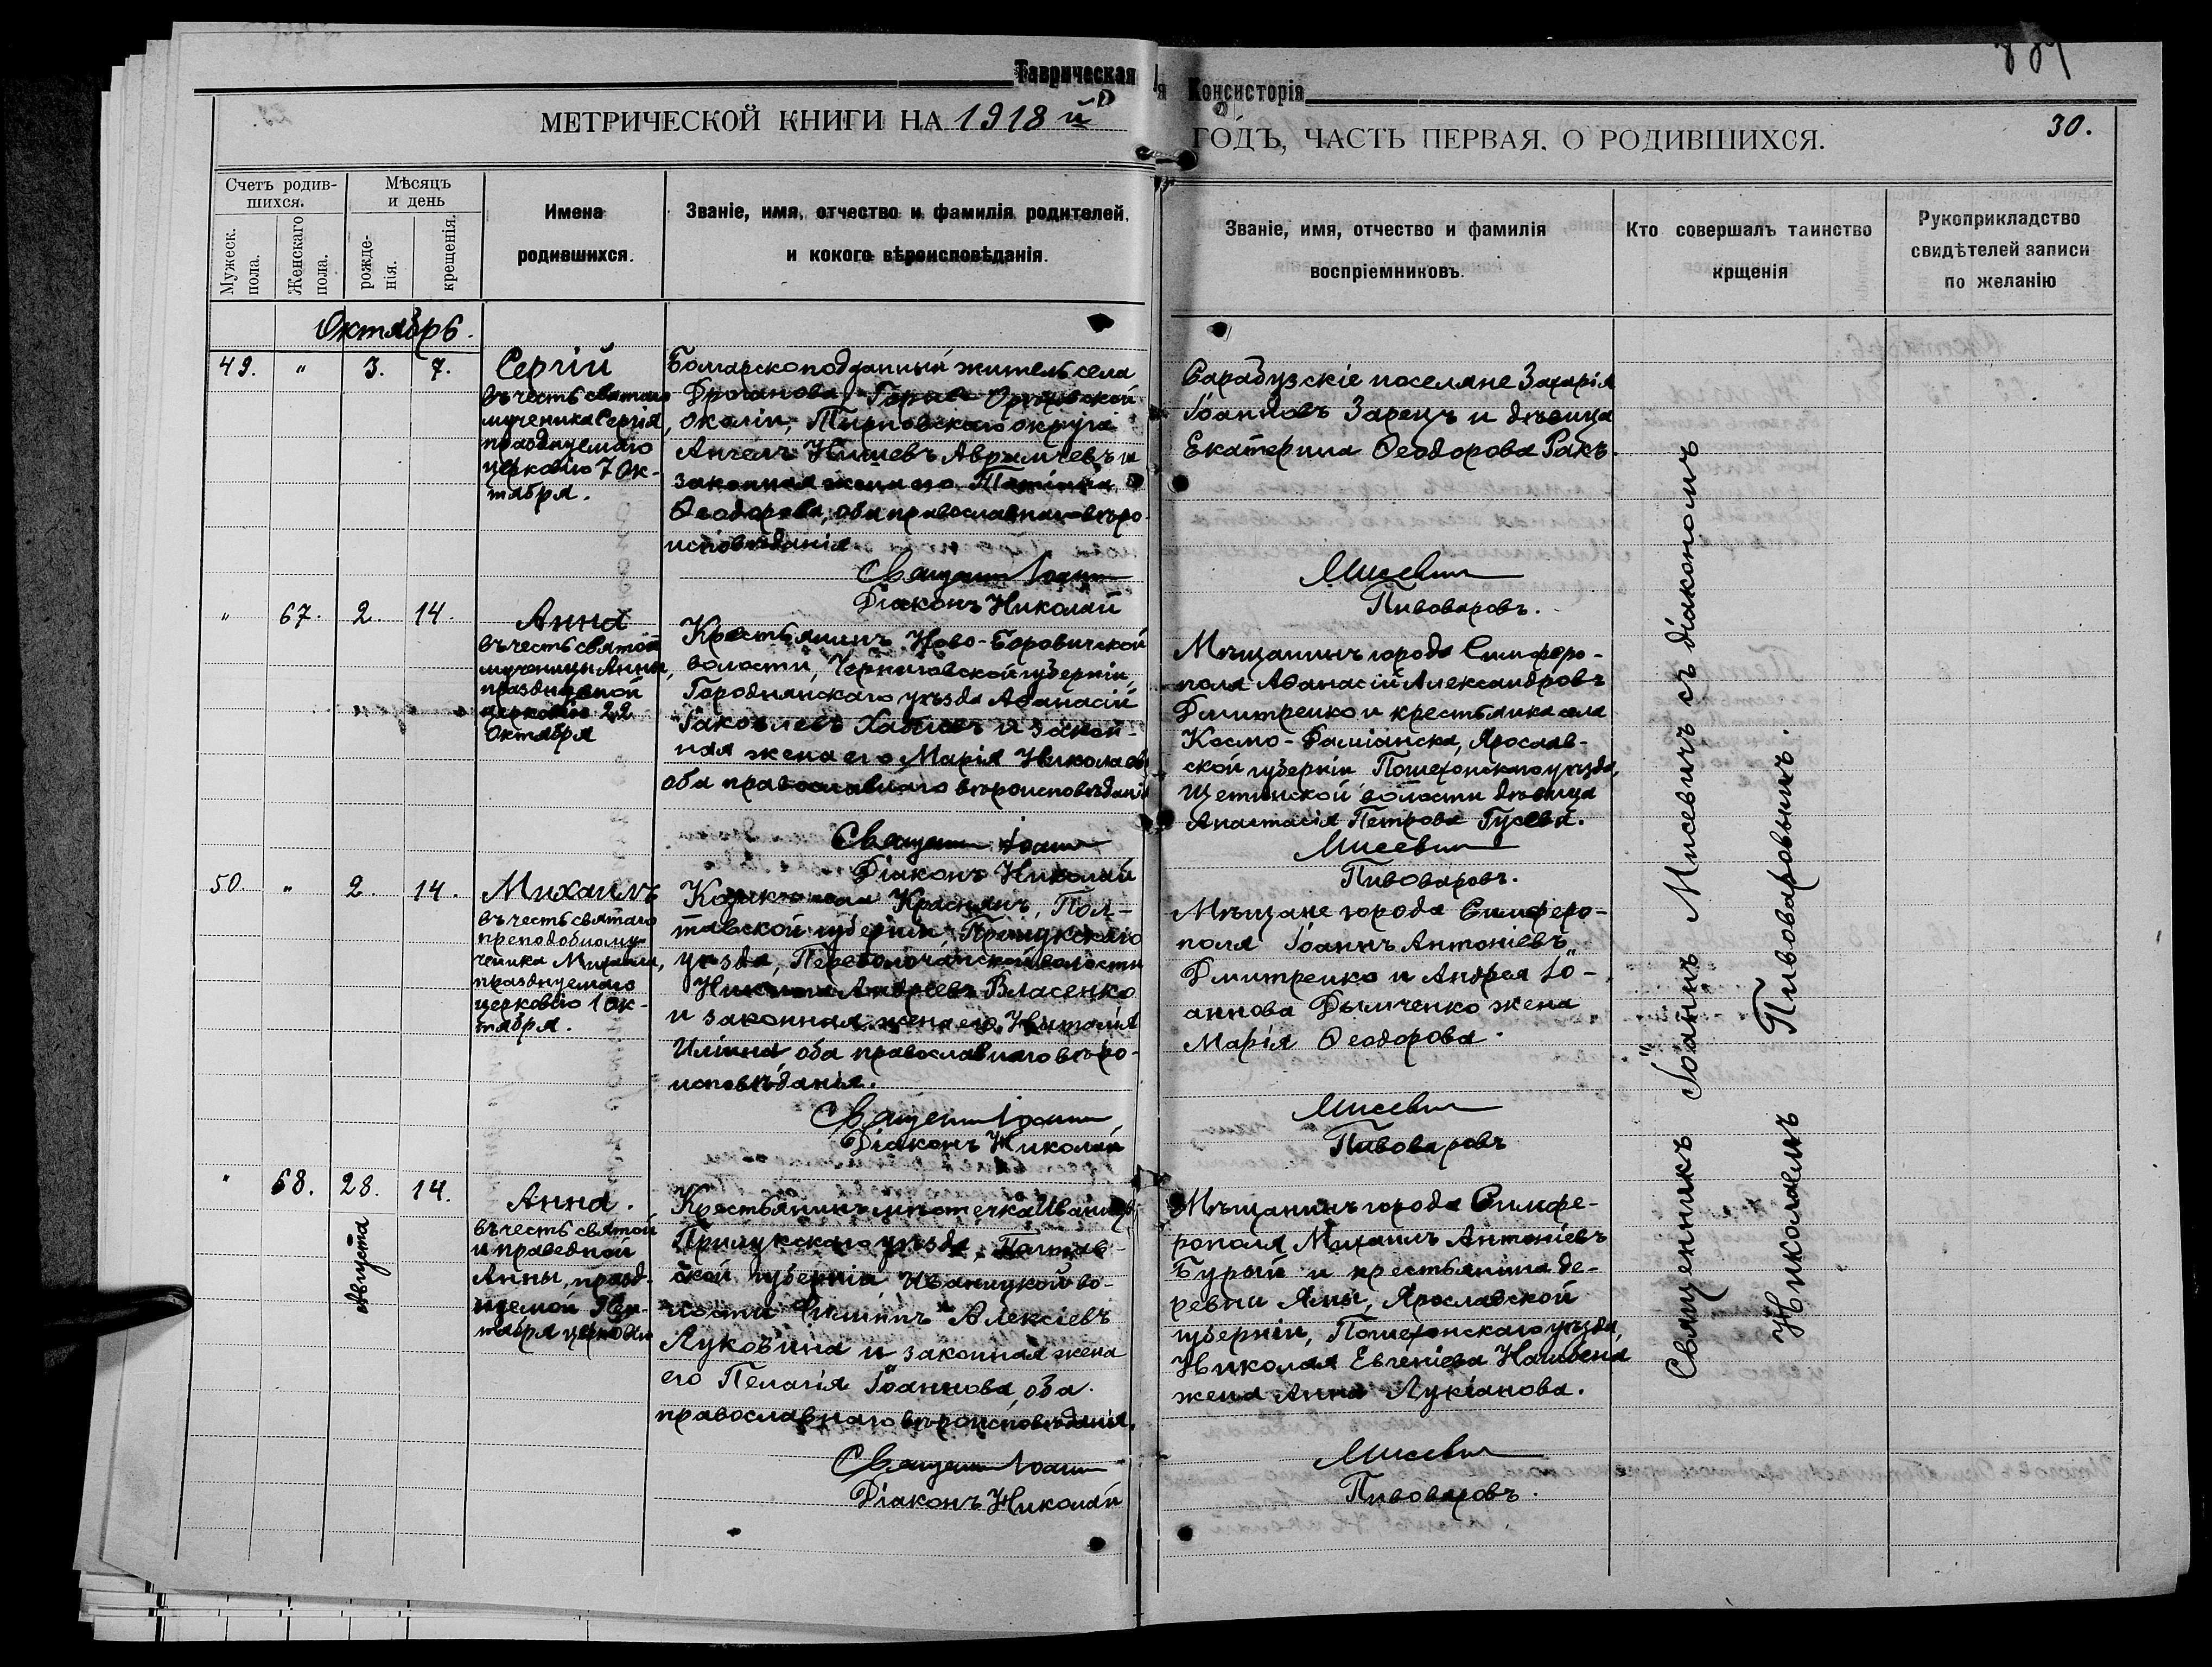 Таврическая
Консисторія
МЕТРИЧЕСКОЙ КНИГИ НА 1918 й
ГОДЪ, ЧАСТЬ ПЕРВАЯ. О РОДИВШИХСЯ.
30.
Счетъ родив-
шихся.
Мужеск.
пола.
Женскаго
пола.
Мѣсяцъ
и день
рожде-
нія.
крещенія.
Имена
родившихся.
Званіе, имя, отчество и фамилія родителей,
и кокого вѣроисповѣданія.
Званіе, имя, отчество и фамилія
воспріемниковъ.
Кто совершалъ таинство
крщенія
Рукоприкладство
свидѣтелей записи
по желанію
Октябрь.
49. " 3. 7.
Сергій
въ честь святаго
мученика Сергія,
празднуемаго
церковію 7 Ок-
тября.
Болгарскоподданный житель села
околіи, Тырновскаго округа
Ангелъ
законная жена его
Ѳеодорова, оба православнаго вѣро-
исповѣданія
Священникъ Іоаннъ
Діаконъ Николай
Сарабузскіе поселяне Захарія
Іоанновъ Зарецъ и дѣвица
Екатерина Ѳеодорова Ракъ.
Мисевичъ
Пивоваровъ.
" 67. 2. 14.
Анна
въ честь святой
мученицы Анны,
празднуемой
церковію 22
Октября
Крестьянинъ Ново-Боровичской
волости, Черниговской губерніи,
Городнянскаго уѣзда Аѳанасій
Іаковлевъ и закон-
ная жена его Марія Николаева
оба православнаго вѣроисповѣданія
Священникъ Іоаннъ
Діаконъ Николай
Мѣщанинъ города Симферо-
поля Аѳанасій Александровъ
Дмитренко и крестьянка села
Космо-Даміанска, Ярослав-
ской губерніи Пошехонскаго уѣзда,
Щетинской волости дѣвица
Анастасія Петрова Гусева.
Мисевичъ
Пивоваровъ.
50. " 2. 14.
Михаилъ
въ честь святаго
преподобному-
ченика Михаила,
празднуемаго
церковію 1 Ок-
тября.
Козакъ села Краснянъ, Пол-
тавской губерніи, Прилукскаго
уѣзда, Переволочанской волости
Андреевъ Власенко
и законная жена его Наталія
Иліина оба православнаго вѣро-
исповѣданія.
Священникъ Іоаннъ
Діаконъ Николай
Мѣщане города Симферо-
поля Іоаннъ Антоніевъ
Дмитренко и Андрея Іо-
аннова Дымченко жена
Марія Ѳеодорова.
Мисевичъ
Пивоваровъ
" 68. 28. 14.
Августа
Анна.
въ честь святой
и праведной
Анны, празд-
нуемой Сен-
тября церковію
Крестьянинъ мѣстечка
Прилукскаго уѣзда, Полтав-
ской губерніи, Иваницкой во-
лости Филиппъ Алексіевъ
Луковина и законная жена
его Пелагія Іоаннова оба
православнаго вѣроисповѣданія.
Священникъ Іоаннъ
Діаконъ Николай
Мѣщанинъ города Симфе-
рополя Михаилъ Антоніевъ
Бурый и крестьянина де-
ревни Ямы, Ярославской
губерніи, Пошехонскаго уѣзда,
Николая Евгеніева
жена Анна Лукіанова.
Мисевичъ
Пивоваровъ.
Священникъ Іоаннъ Мисевичъ съ діакономъ
Николаемъ Пивоваровымъ.